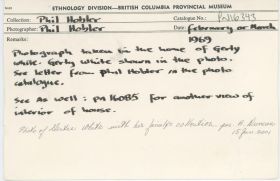 ETHNOLOGY DIVISION—BRITISH COLUMBIA PROVINCIAL MUSEUM
Collection: Phil Hobler Catalogue No.: PN16343
Photographer: Phil Hobler Date: february or March
Remarks: 1969
Photograph taken in the home of Gerty
White. Gerty White shown in the photo.
See letter from Phil Hobler in the photo
catalogue.
See as well: PN 16085 for another view of
interior of house.
Photo of White with her family's collection per. H.
15 Jan 2001